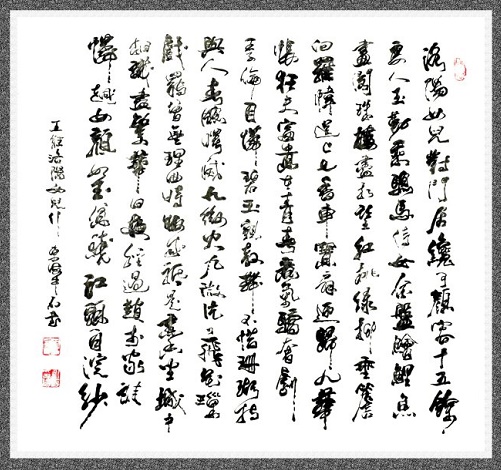 洛陽女兒對門居纔可顏容十五餘
良人玉勒乘驄馬侍女金盤鱠鯉魚
畫閣珠樓盡相望紅桃綠柳垂簷
向羅幃送上七香車寶扇迎歸九華
帳狂夫富貴在青春意氣驕奢劇
季倫自憐碧玉親教舞不惜珊瑚持
與人春窗曙滅九微火九微片片飛花璅
戲罷曾無理曲時妝成祗是熏香坐城中
相識盡繁華日夜經過趙李家誰
憐越女顏如玉貧賤江頭自浣紗
王維洛陽女兒行